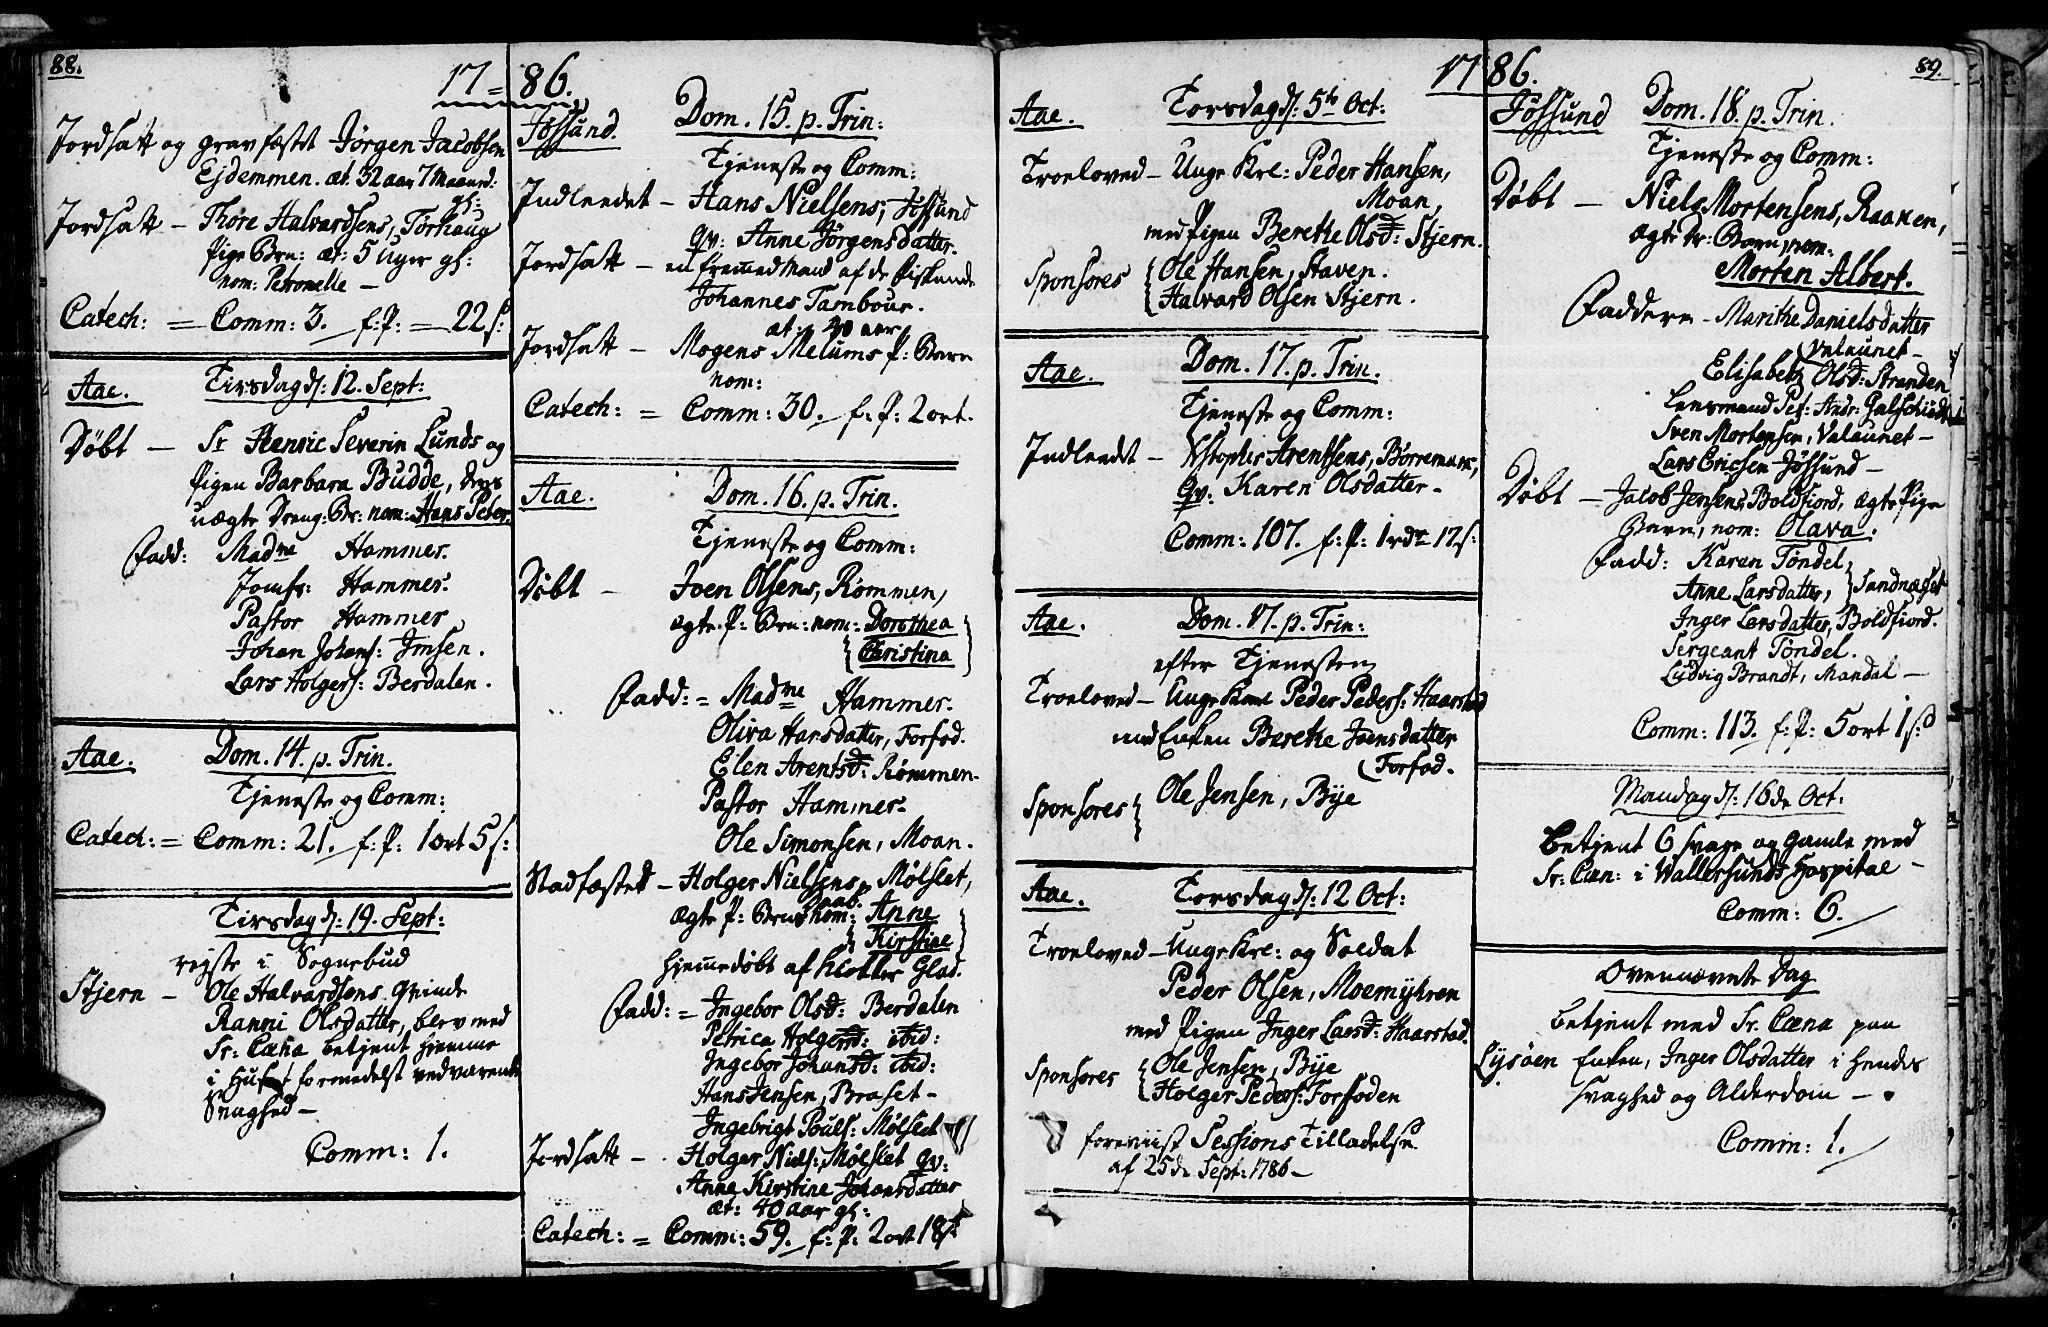 88.
17=86.
Jordsatt og gravfæstet Jørgen Jacobsen
Ejdemmen. æt. 32 aar 7 Maaned:
gl:
Jordsatt – Thore Halvardsens, Tørhaug
Pige Brn: æt: 5 Uger gl:
nom: Petronelle –
Catech: = Comm: 3. f: P: = 22 s:
Aae. Tirsdag d: 12. Sept:
Døbt – Sr Henric Severin Lunds og
Pigen Barbara Budde, deres
uægte Dreng: Br: nom: Hans Peter.
Fadd: Madme Hammer.
Jomfr: Hammer.
Pastor Hammer
Johan Johans: Imsen.
Lars Holgers: Berdalen.
Aae. Dom. 14. p. Trin.
Tjeneste og Comm:
Catech: = Comm: 21. f: P: 1 ort 5 s:
Tirsdag d: 19. Sept:
rejste i Sognebud
Stjern – Ole Halvardsens Qvinde
Ranni Olsdatter, blev med
Sr: Cæna betjent hjemme
i Huset formedelst vedvarende
Svaghed –
Comm: 1.
Jøssund. Dom. 15. p. Trin:
Tjeneste og Comm:
Indleedet – Hans Nielsens, Jøssund
Qv: Anne Jørgensdatter.
Jordsatt – en fremmed Mand af de
Johannes Tambour.
æt: 40 aar
Jordsatt – Mogens Melums P: Barn
nom:
Catech: = Comm: 30. f: P: 2 ort.
Aae. Dom. 16. p. Trin.
Tjeneste og Comm:
Døbt – Joen Olsens, Rømmen,
ægte P: Brn: nom: Dorothea
Christina
Fadd: = Madme Hammer.
Oliva Hansdatter, Forfod.
Elen Arentsd: Rømmen.
Pastor Hammer.
Ole Simonsen, Moan.
Stadfæstet – Holger Nielsens, Mølslet,
Daab
ægte P: Brns nom: Anne
Kirstine
hjemmedøbt af Klokker Glad.
Fadd: = Ingebor Olsd: Berdalen
Petrica Holgersd: ibid:
Ingebor Johansd: ibid:
Hans Jensen, Braset –
Ingebrigt Pouls: Mølslet
Jordsatt – Holger Niels: Mølslet Qv:
Anne Kirstine Johansdatter
æt: 40 aar gl:
Catech: = Comm: 59. f: P: 2 ort 18 s:
17 86.
89.
Aae. Torsdag d: 5te Oct:
Troeloved – Unge Krl: Peder Hansen,
Moan,
med Pigen Berethe Olsd: Stjern.
Sponsores Ole Hansen, Staven.
Halvard Olsen Stjern.
Aae. Dom. 17. p. Trin.
Tjeneste og Comm:
Indleedet – Xstopher Arentsens, Børremark,
Qv: Karen Olsdatter –
Comm: 107. f: P: 1 rdr 12 s:
Aae. Dom. 17. p. Trin:
efter Tjenesten
Troeloved – Unge Karl Peder Peders: Haarstad
med Enken Berethe Joensdatter
Forfod.
Sponsores Ole Jensen, Bye
Aae. Torsdag d: 12 Oct:
Troeloved – Unge Krl: og Soldat
Peder Olsen, Moemyhren
med Pigen Inger Larsd: Haarstad.
Sponsores Ole Jensen, Bye
Holger Peders: Forfoden
foreviist Sessions Tilladelse
af 25de Sept: 1786 –
Jøssund Dom. 18. p. Trin.
Tjeneste og Comm:
Døbt – Niels Mortensens, Raanen,
ægte Dr: Barn, nom:
Morten Albert.
Faddere – Marithe Danielsdatter
Valaunet –
Elisabeth Olsd: Stranden
Lensmand Pet: Andr: Galschiødt
Sven Mortensen, Valaunet –
Lars Ericsen Jøssund –
Døbt – Jacob Jensens, Boldfiord, ægte Pige
Barn, nom: Olava.
Fadd: Karen Tøndel,
Anne Larsdatter, Sandnæset
Inger Larsdatter, Boldfiord.
Sergeant Tøndel.
Ludvig Brandt, Mandal –
Comm: 113. f: P: 5 ort 1 s:
Mandag d: 16de Oct:
Betjent 6 svage og gamle med
Sr: Cæn: i Wallersunds Hospital –
Comm: 6.
Ovennævnte Dag
betjent med Sr. Cæna paa
Lysøen Enken, Inger Olsdatter i hendes
svaghed og Alderdom –
Comm: 1.